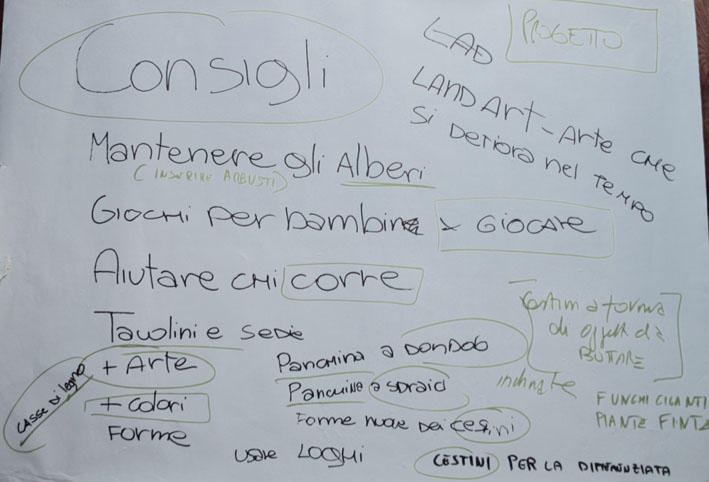 PROGETTO
Consigli
LAND Art - Arte che
si deteriora nel tempo
Mantenere gli Alberi
(INSERIRE ARBUSTI)
Giochi per bambini x GIOCARE
Aiutare chi corre
Tavolini e sedie
+ Arte
casse di legno
+ colori
Forme
Panchina a DONDOLO
Panchine a sdraio
Forme nuove dei cestini
usare LOGHI
CESTINI PER LA DIFFERENZIATA
Cestini a forma
di oggetti da
BUTTARE
FUNGHI GIGANTI
PIANTE FINTE